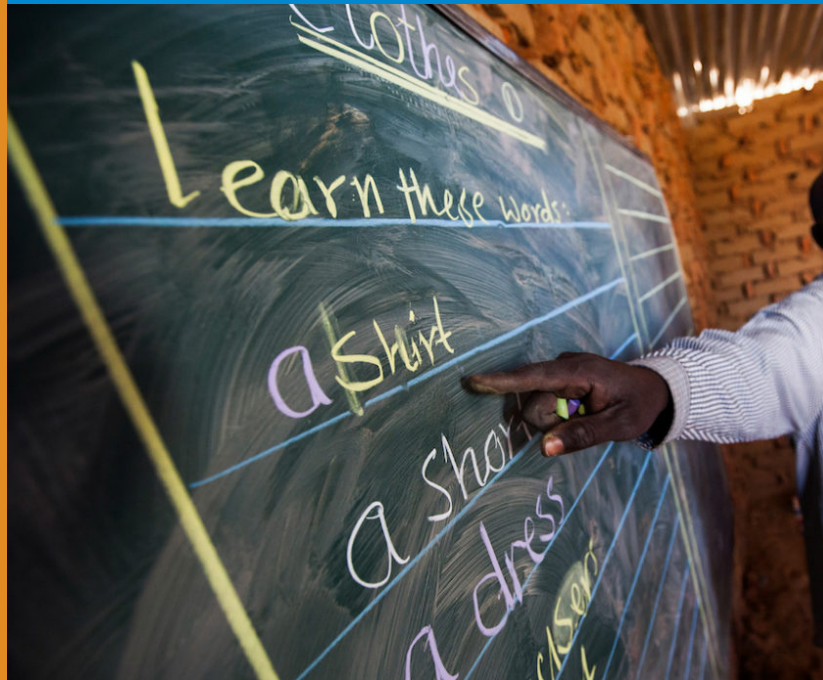 Clothes
Learn these words:
a shirt
a
a dress